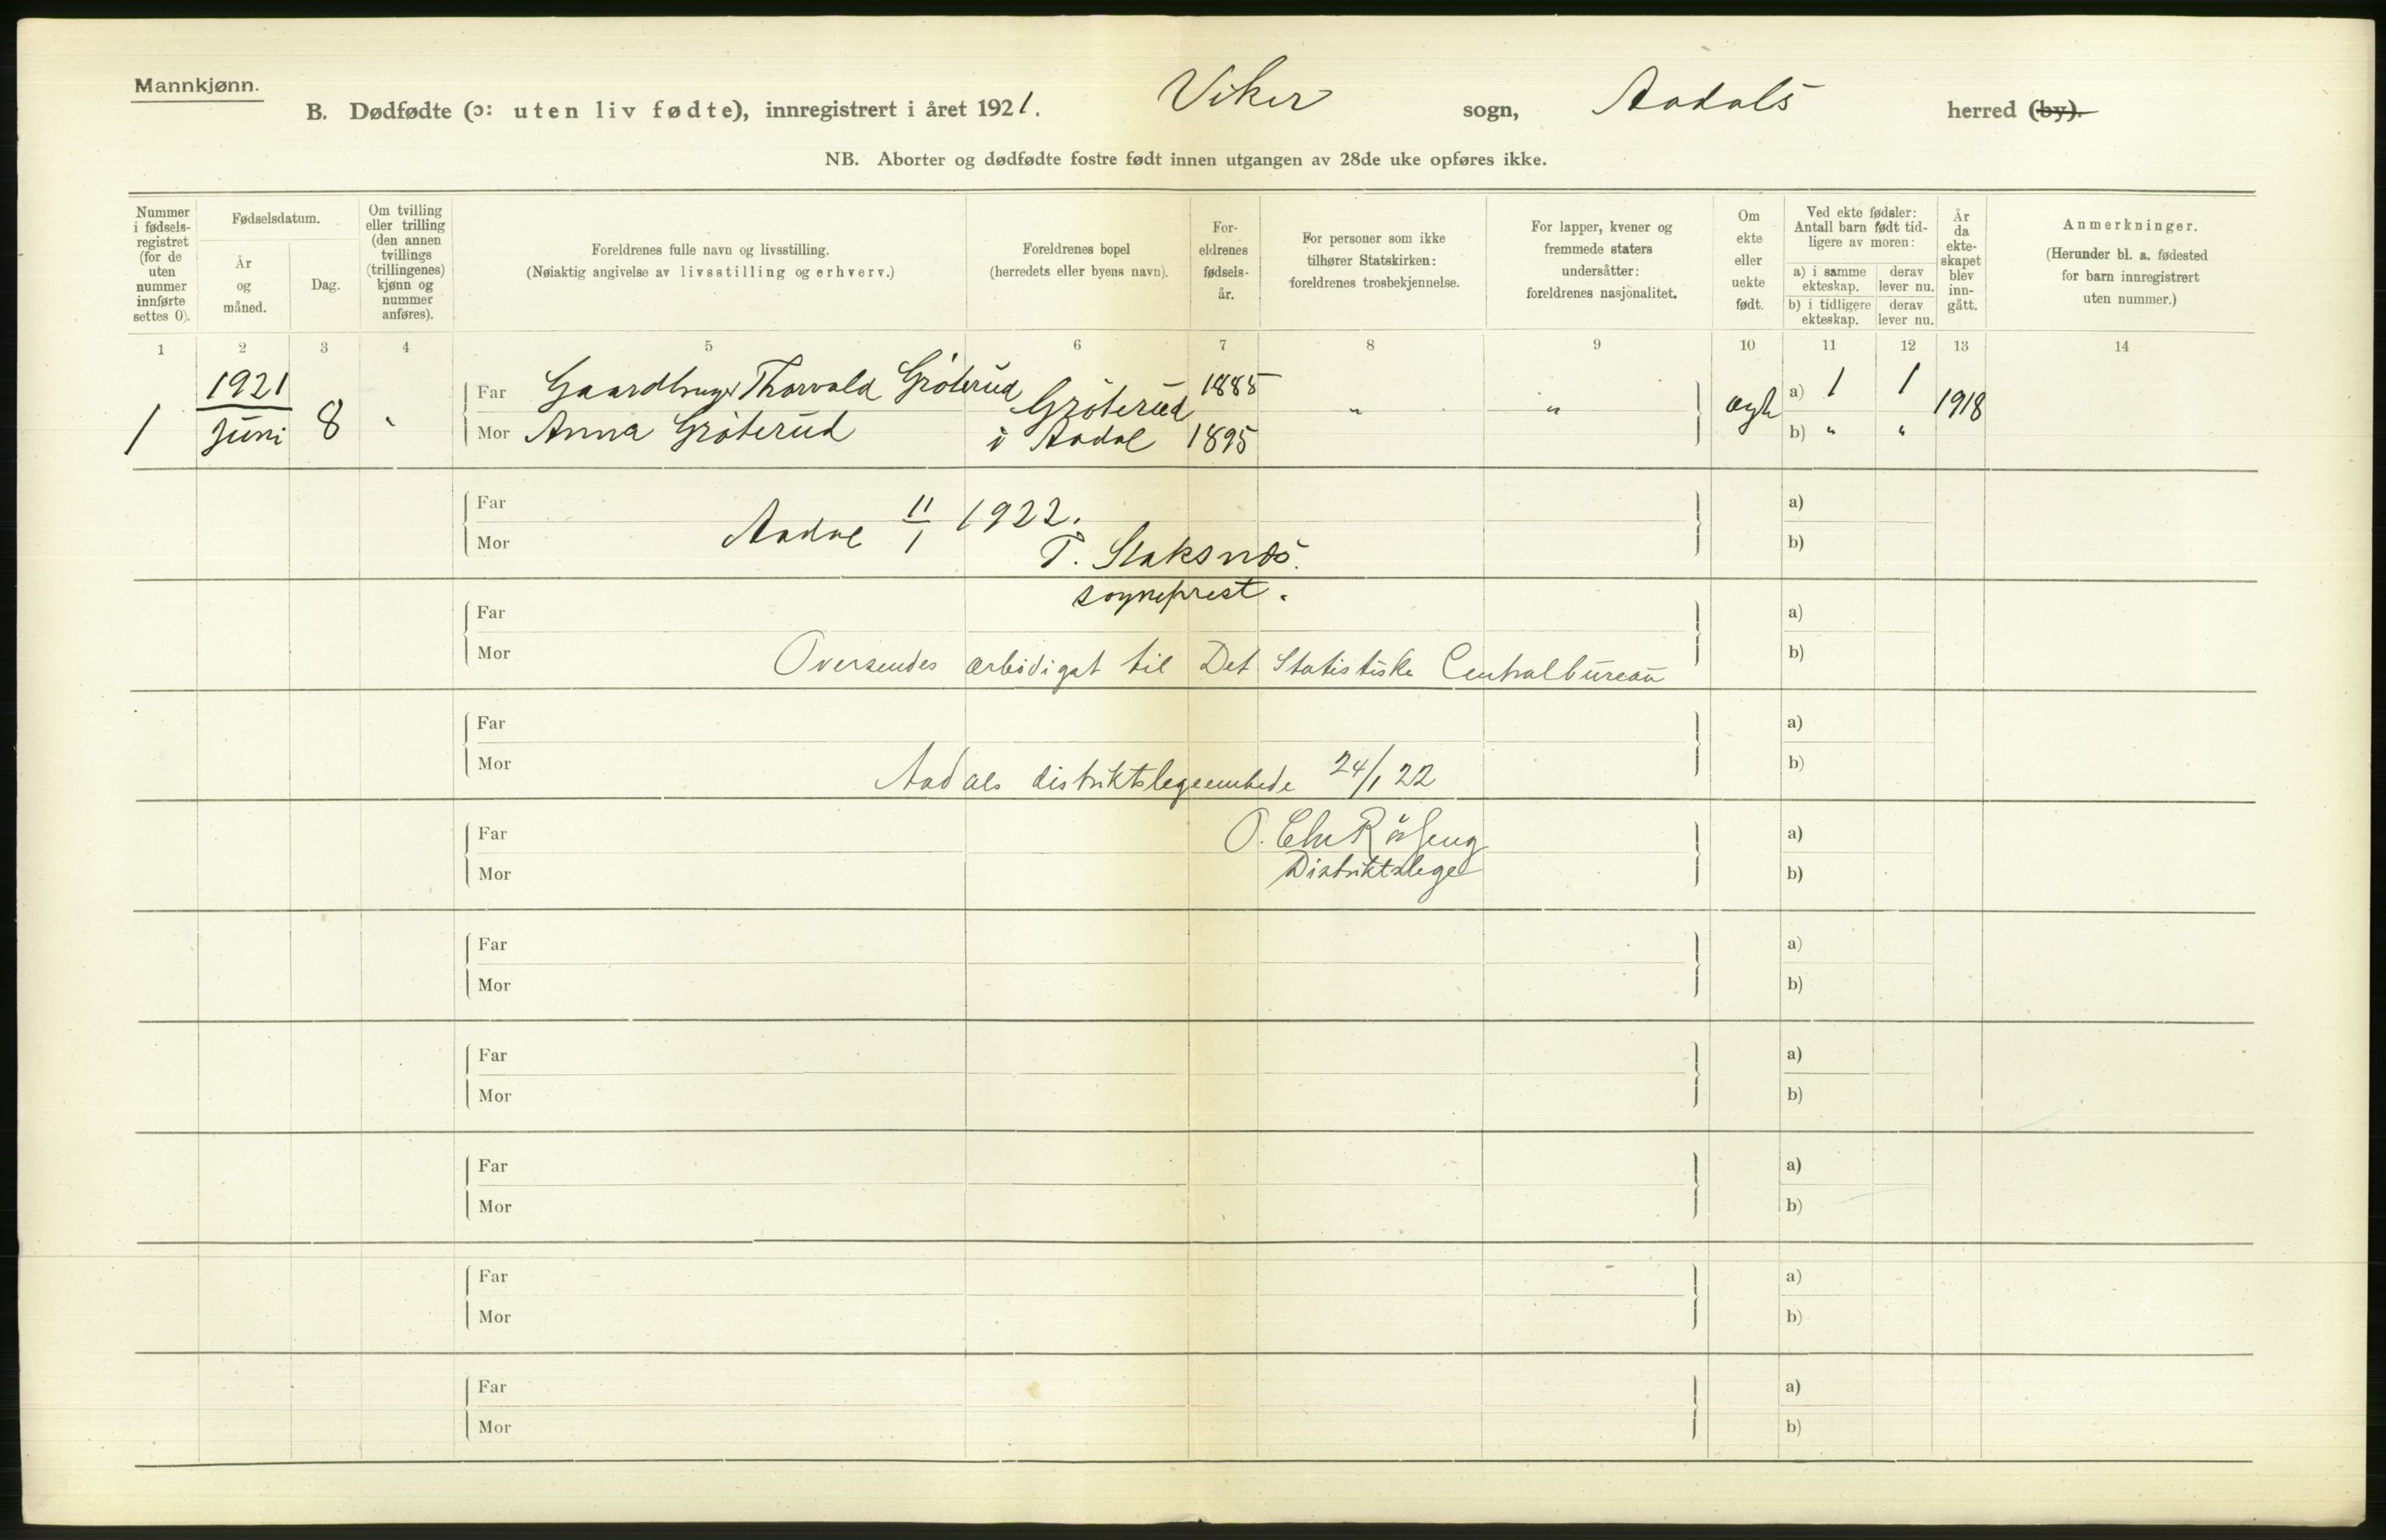 Mannkjønn.
B. Dødfødte (ɔ: uten liv fødte), innregistrert i året 1921. Viker sogn, Aadals herred (by).
NB. Aborter og dødfødte fostre født innen utgangen av 28de uke opføres ikke.
Nummer i fødsels- registret (for de uten nummer innførte settes 0).
Fødselsdatum.
År og måned.
Dag.
Om tvilling eller trilling (den annen tvillings (trillingenes) kjønn og nummer anføres).
Foreldrenes fulle navn og livsstilling.
(Nøiaktig angivelse av livsstilling og erhverv.)
Foreldrenes bopel
(herredets eller byens navn).
For- eldrenes fødsels- år.
For personer som ikke tilhører Statskirken: foreldrenes trosbekjennelse.
For lapper, kvener og fremmede staters undersåtter: foreldrenes nasjonalitet.
Om ekte eller uekte født.
Ved ekte fødsler: Antall barn født tid- ligere av moren:
a) i samme ekteskap. derav lever nu.
b) i tidligere ekteskap. derav lever nu.
År da ekte- skapet blev inn- gått.
Anmerkninger.
(Herunder bl. a. fødested for barn innregistrert uten nummer.)
1 2 3 4 5 6 7 8 9 10 11 12 13 14
1921 Far Gaardbruger Thorvald Gröterud Gröterud 1885 " " a) 1 1
1 juni 8 Mor Anna Gröterud i Aadal 1895 ægte b) " " 1918
Far a)
Mor Aadal 11/1 1922. b)
T. Slaksnes.
sogneprest.
Far a)
Mor b)
Oversendes ærbödigst til Det Statistiske Centralbureau
Far a)
Mor b)
Aadals distriktslegeembede 24/1 22
Far O. Chr a)
Mor Distriktslege b)
Far a)
Mor b)
Far a)
Mor b)
Far a)
Mor b)
Far a)
Mor b)
Far a)
Mor b)